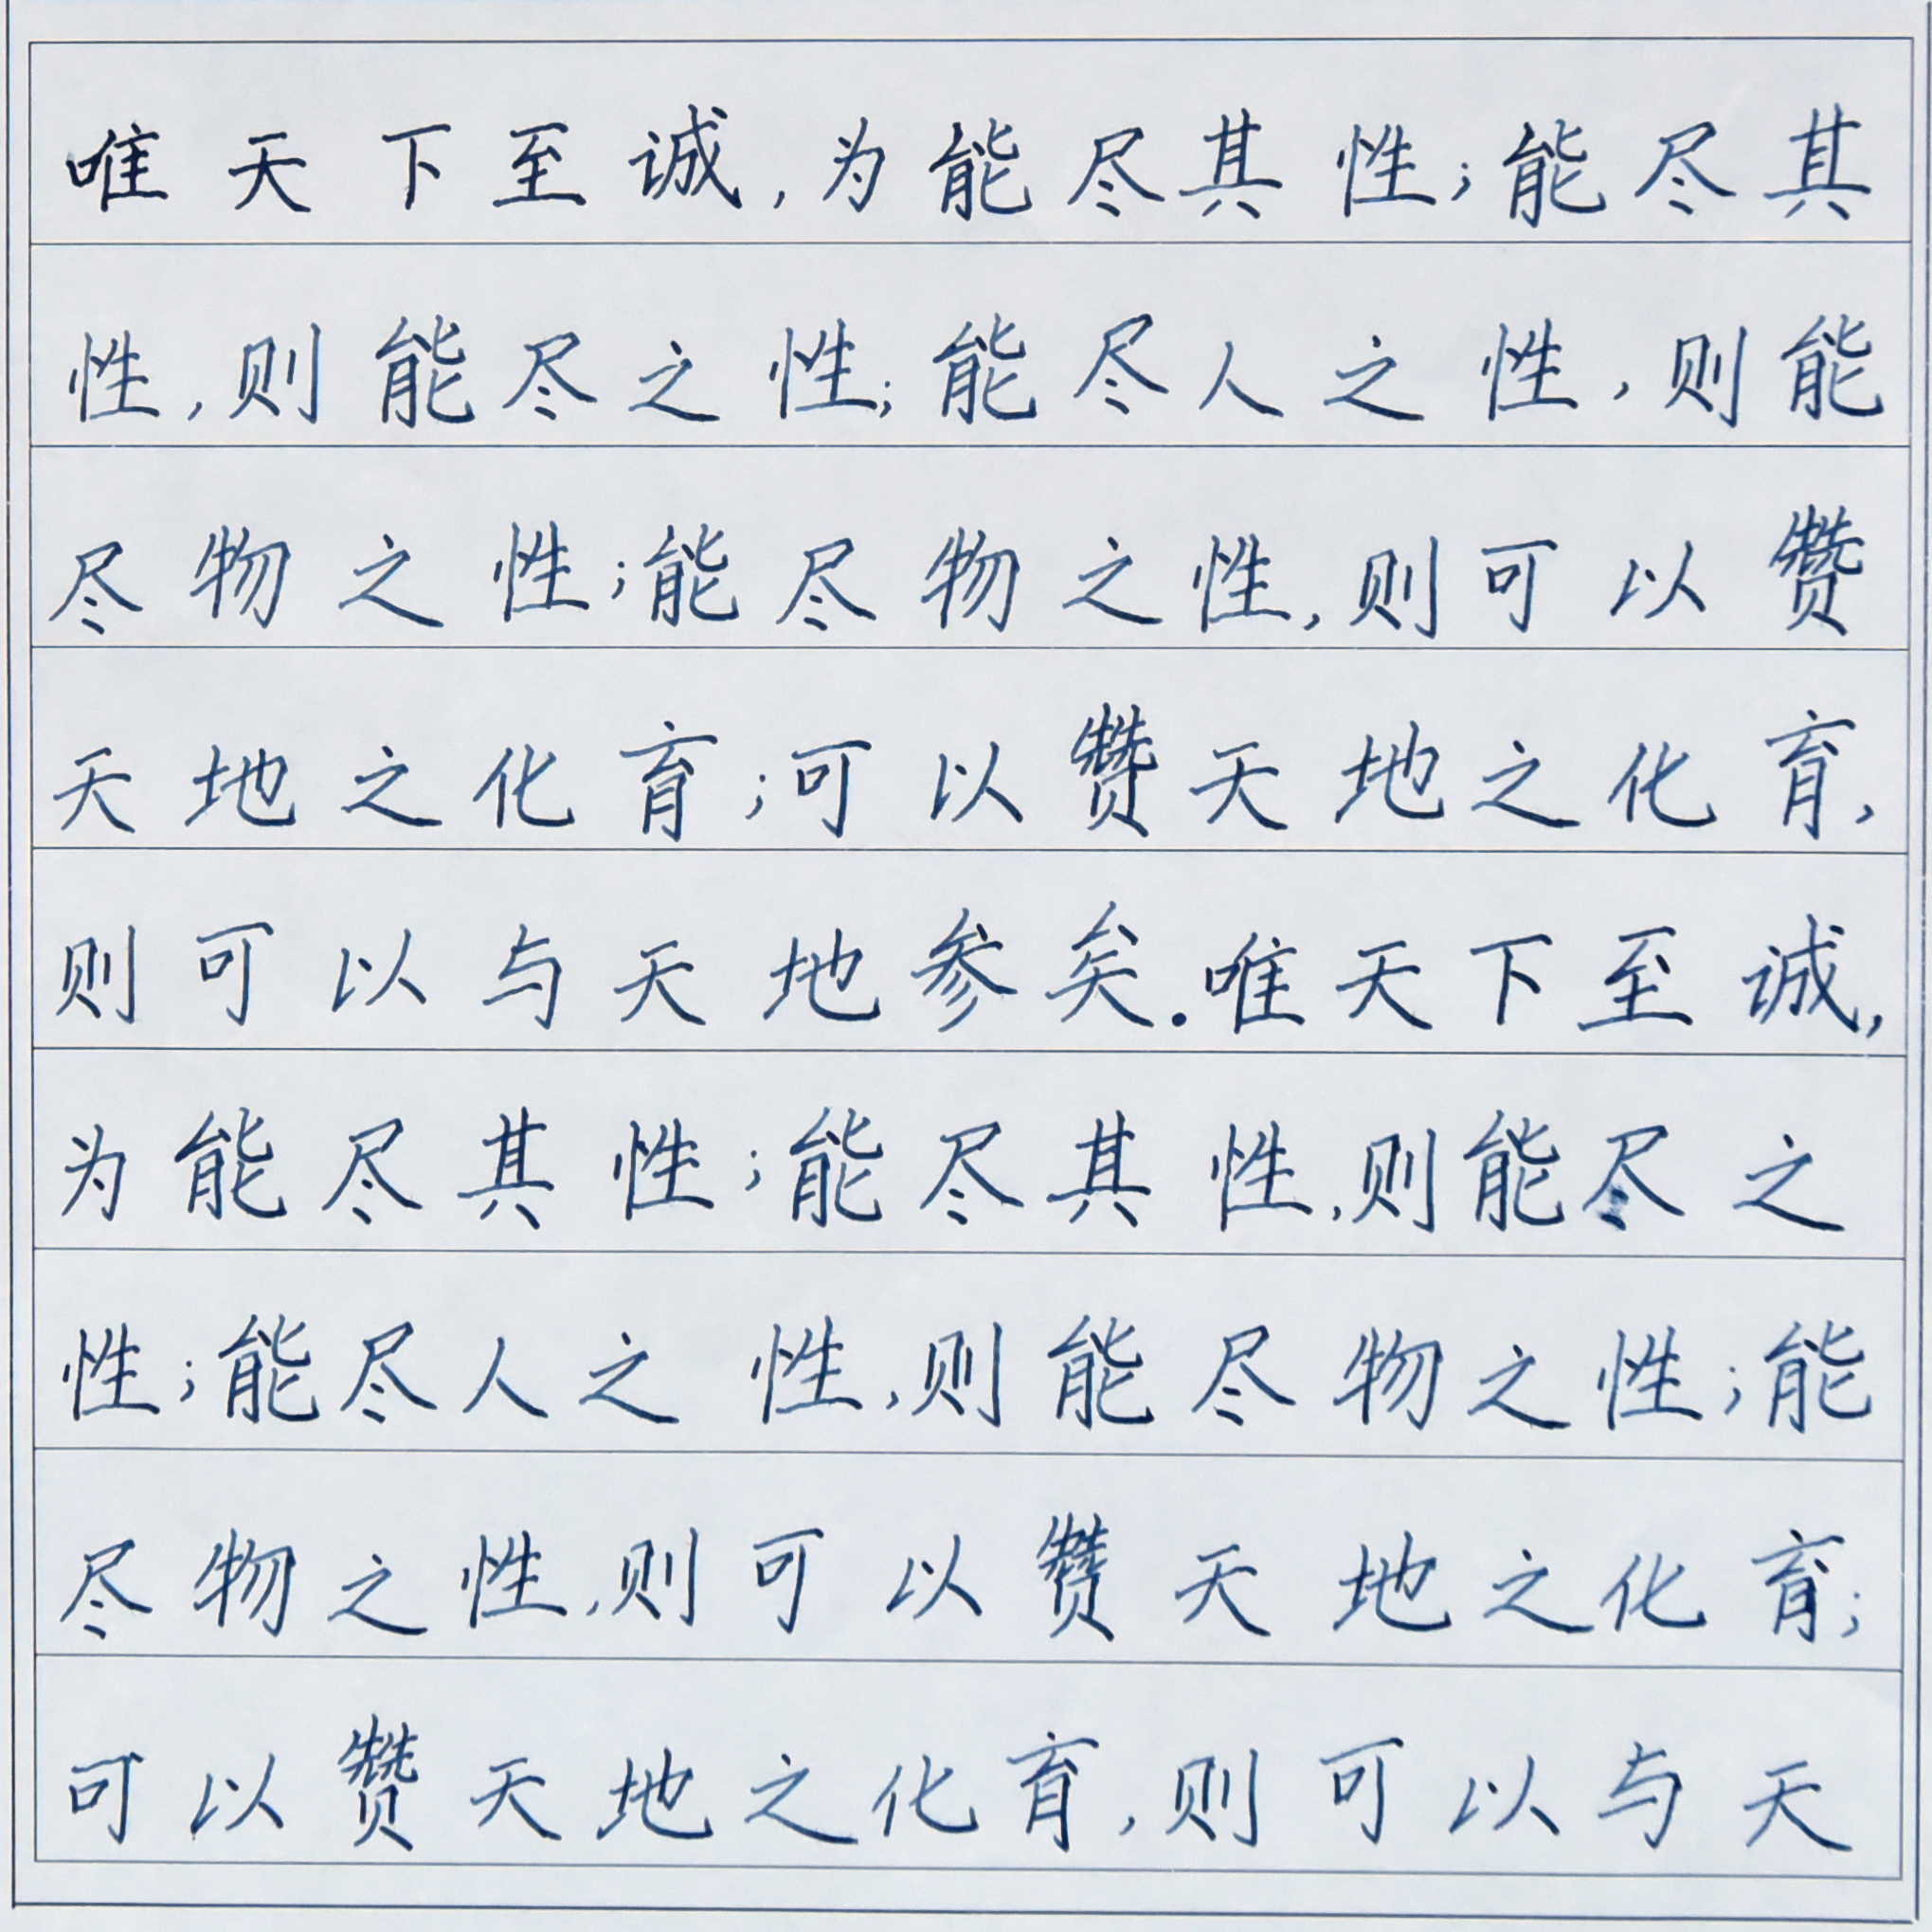 唯天下至诚,为能尽其性;能尽其
性,则能尽之性;能尽人之性,则能
尽物之性;能尽物之性,则可以赞
天地之化育;可以赞天地之化育,
则可以与天地参矣.唯天下至诚,
为能尽其性;能尽其性,则能尽之
性;能尽人之性,则能尽物之性;能
尽物之性,则可以赞天地之化育;
可以赞天地之化育,则可以与天